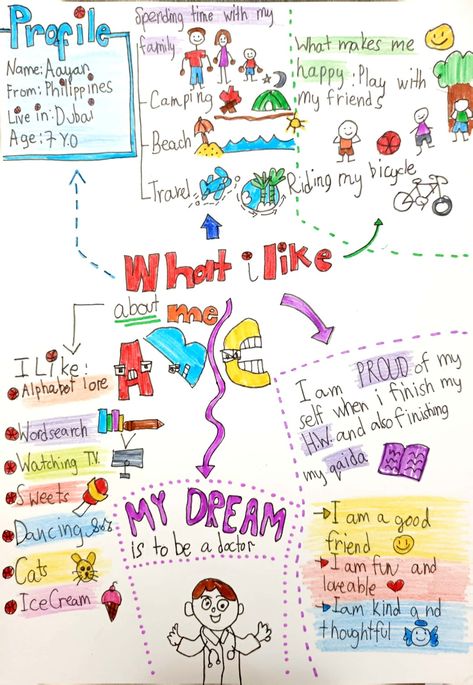 Profile
Name: Aayan
From: Philippines
Live in: Dubai
Age: 7 Y.O
Spending time with my
family
Camping
Beach
Travel
What makes me
happy: Play with
my friends
Riding my bicycle
What i like
about me
ABC
I Like:
Alphabet lore
Wordsearch
Watching T.V.
Sweets
Dancing
Cats
Ice Cream
MY DREAM
is to be a doctor
I am PROUD of my
self when i finish my
H.W. and also finishing
my qaida
I am a good
friend
I am fun and
loveable
I am kind and
thoughtful